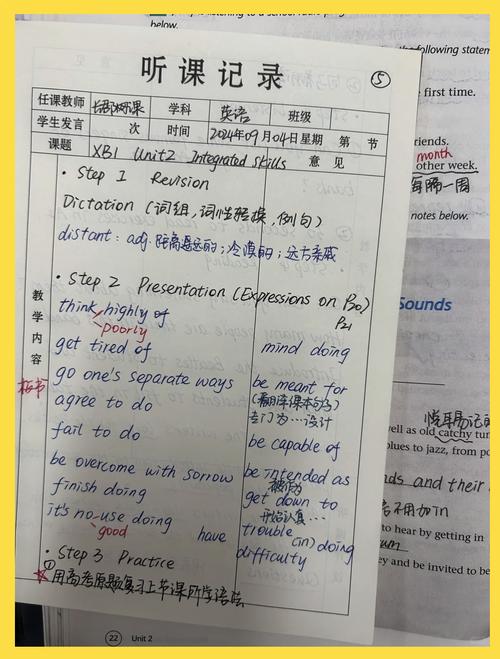 is listening to a school radio
below.
the following statem
听课记录
⑤
任课教师
学科 英语 班级
first time.
学生发言 次 时间 2024年09月04日星期 第 节
课题 XB1 Unit2 Integrated Skills 意见
riends.
month
other week.
每隔一周
notes below.
• Step 1 Revision
Dictation (词组,词性转换,例句)
distant: adj. 距离遥远的;冷漠的;远方亲戚
• Step 2 Presentation (Expressions on P20)
P21
教学内容
板书
think highly of
poorly
get tired of
go one's separate ways
agree to do
fail to do
be overcome with sorrow
finish doing
it's no use doing
good
mind doing
be meant for
专门为…设计
be capable of
be intended as
被作为
get down to
开始认真…
have trouble (in) doing
difficulty
• Step 3 Practice
①
用高考原题复习上节课所学语法
Sounds
well as old catchy tun
blues to jazz, from po
ds and their
to hear by getting in
ey and be invited to be
22 Unit 2